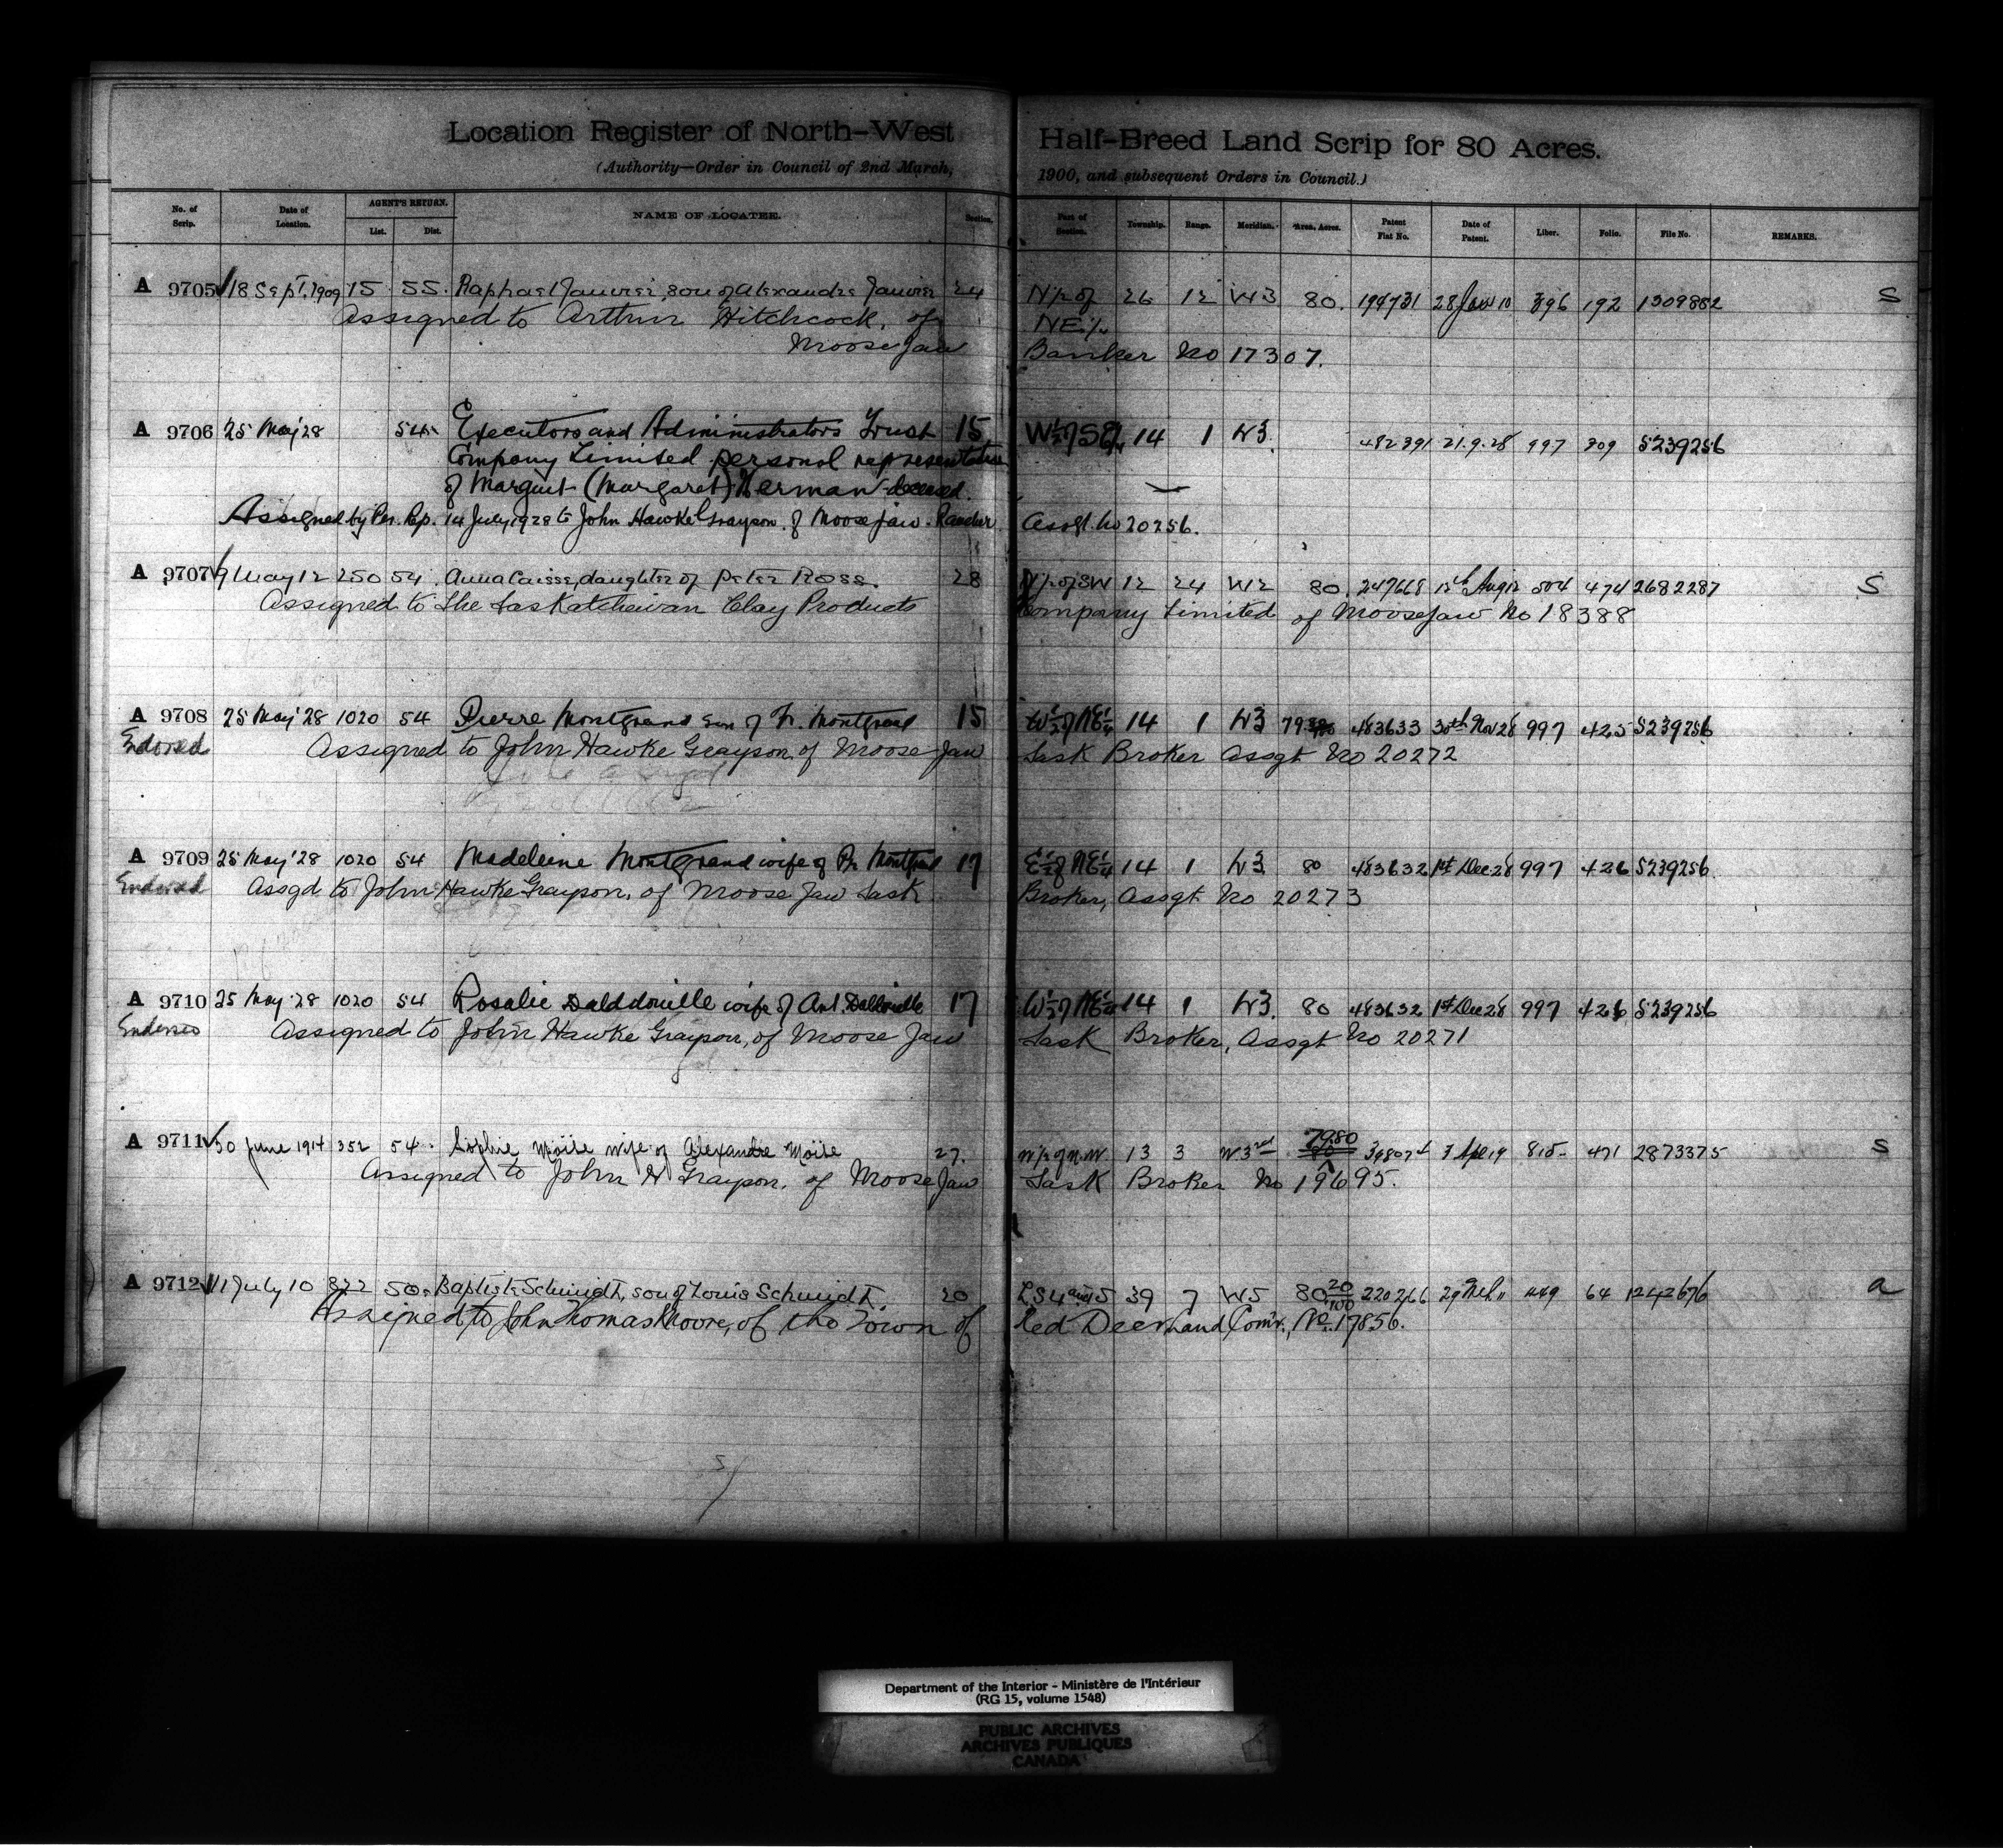 Location Register of North-West Half-Breed Land Scrip for 80 Acres.
(Authority—Order in Council of 2nd March, 1900, and subsequent Orders in Council.)
No. of Scrip. Date of Location. AGENT'S RETURN. List. Dist. NAME OF LOCATEE. Section. Part of Section. Township. Range. Meridian. Area, Acres. Patent Fiat No. Date of Patent. Liber. Folio. File No. REMARKS.
A 9705 18 Sept. 1909 15 55. Raphael Janvier, son of Alexandre Janvier 24 N½ of 26 12 W3 80. 194731 28 Jan 10 396 192 1309882 S
Assigned to Arthur Hitchcock, of NE¼
Moose Jaw Banker No 17307.
A 9706 25 May '28 54 Executors and Administrators Trust 15 W½ of SE¼ 14 1 W3. 482391 21.9.28 997 309 5239256
Company Limited personal representative
of Margaret (Margaret) Herman deceased.
Assigned by Per. Rep. 14 July 1928 to John Hawke Grayson of Moose Jaw - Rancher Assgt. No 20256.
A 9707 9 May 12 250 54. Anna Caisse, daughter of Peter Ross. 28 N½ of SW 12 24 W2 80. 247668 12th Aug 12 504 474 2682287 S
Assigned to The Saskatchewan Clay Products Company Limited of Moosejaw No 18388
A 9708 25 May '28 1020 54 Pierre Montgrand son of Fr. Montgrand 15 W½ of NE¼ 14 1 W3 79. 483633 30th Nov 28 997 425 5239256
Endorsed Assigned to John Hawke Grayson of Moose Jaw Sask Broker Assgt No 20272
A 9709 25 May '28 1020 54 Madeleine Montgrand wife of Pr. Montgrand 17 E½ of NE¼ 14 1 W3 80 483632 1st Dec 28 997 426 5239256.
Endorsed Assgd to John Hawke Grayson, of Moose Jaw Sask Broker, Assgt No 20273
A 9710 25 May '28 1020 54 Rosalie Dalddouille wife of Ant. Dalddouille 17 W½ of NE¼ 14 1 W3. 80 483632 1st Dec 28 997 426 5239256
Endorsed Assigned to John Hawke Grayson, of Moose Jaw Sask Broker, Assgt No 20271
A 9711 30 June 1914 352 54. Sophie Moïse wife of Alexandre Moïse 27. N½ of N.W. 13 3 W3rd 79.80 7 Apl 19 815 471 2873375 S
Assigned to John H Grayson, of Moose Jaw Sask Broker No 19695.
A 9712 11 July 10 822 50. Baptiste Schmidt, son of Louis Schmidt. 20 LS 4 and 5 39 7 W5 80 20/100 220266 29 Mch 11 449 64 1242676 a
Assigned to John Thomas Moore, of the Town of Red Deer Land Comr., No. 17856.
Department of the Interior - Ministère de l'Intérieur
(RG 15, volume 1548)
PUBLIC ARCHIVES
ARCHIVES PUBLIQUES
CANADA